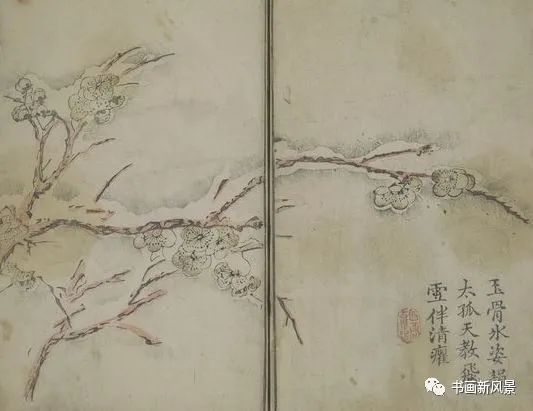 玉骨氷姿韻
太孤天教飛
雪伴清癯
书画新风景